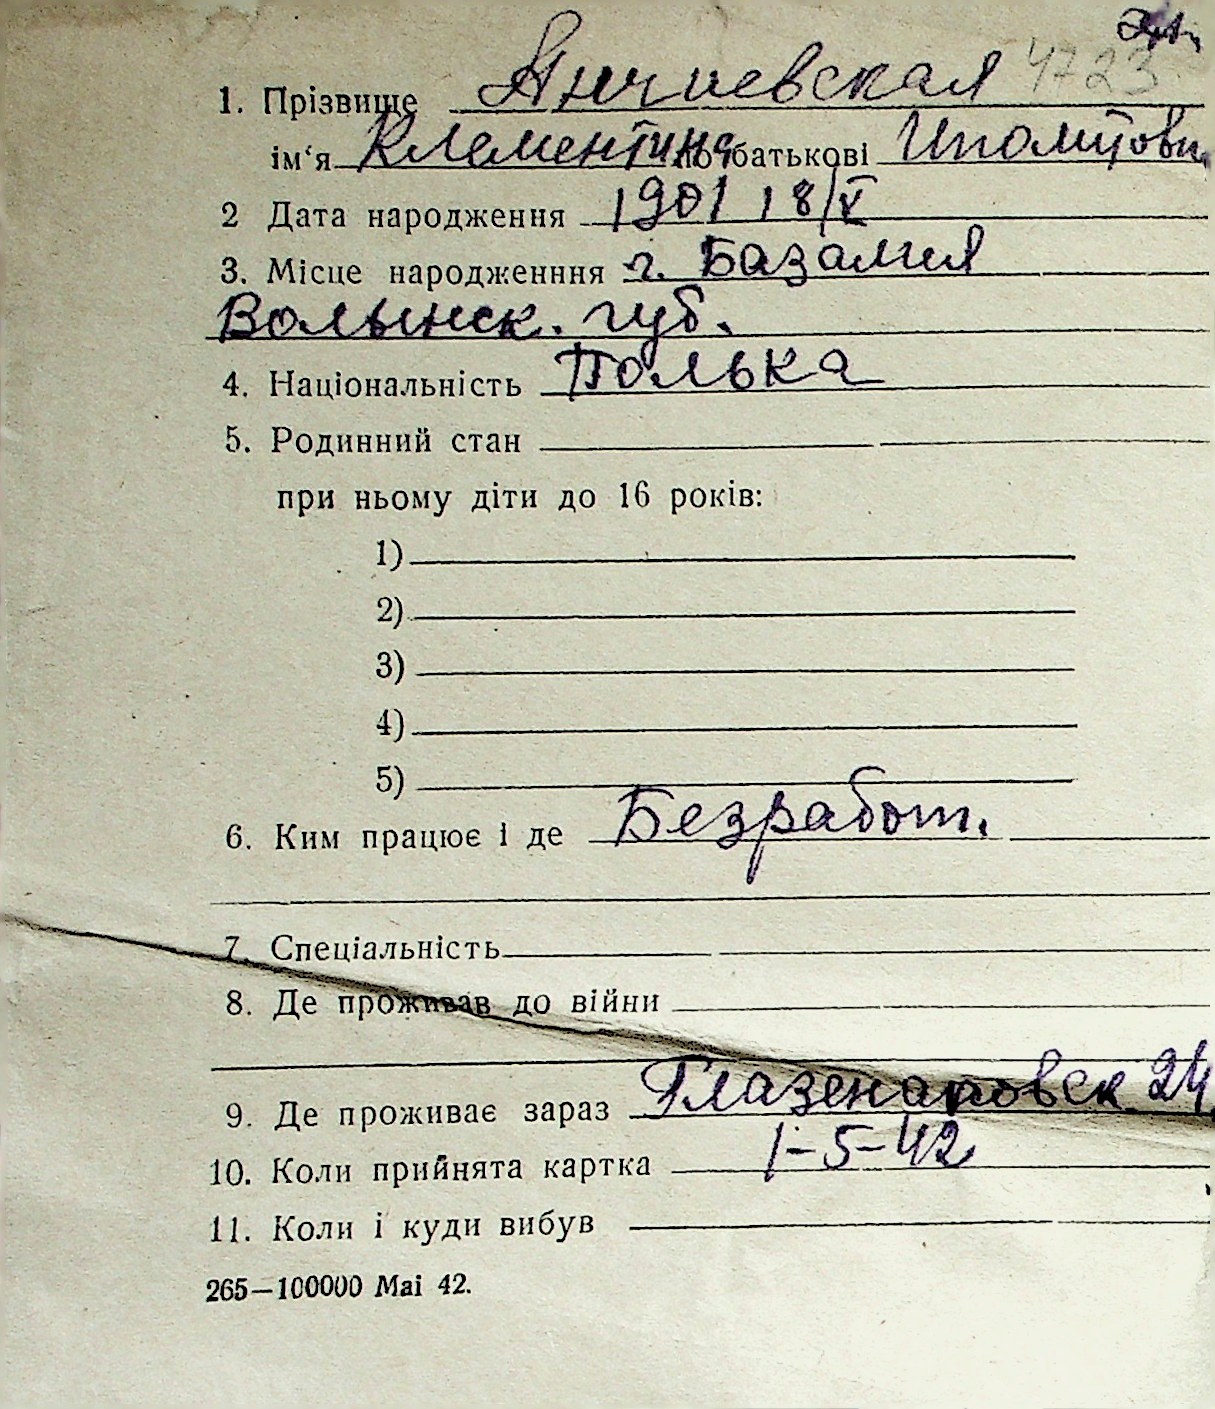 4723
1. Прізвище Янчиевская
ім‘я Клементина по батькові Иполитовн.
2 Дата народження 1901 18/V
3. Місце народженння г. Базалия
Волынск. губ.
4. Національність Полька
5. Родинний стан
при ньому діти до 16 років:
1)
2)
3)
4)
5)
6. Ким працює і де Безработ.
7. Спеціальність
8. Де проживав до війни
9. Де проживає зараз Глазенаповск. 24.
10. Коли прийнята картка 1-5-42
11. Коли і куди вибув
265—100000 Mai 42.